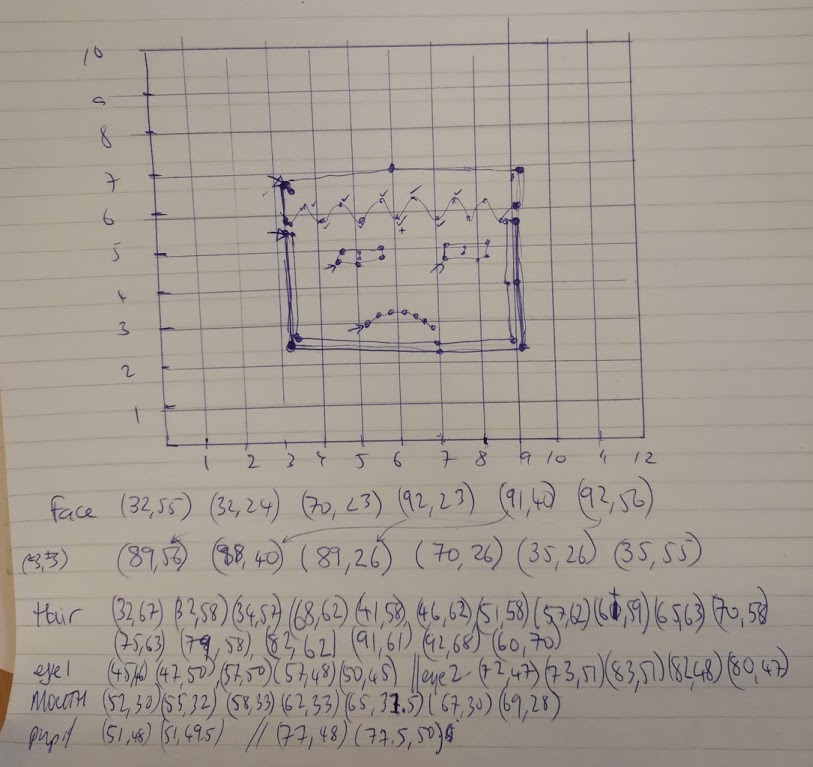 10
9
8
7
6
5
4
3
2
1
1 2 3 4 5 6 7 8 9 10 4 12
Face (32,55) (32,24) (70,23) (92,23) (91,40) (92,56)
(89,56) (88,40) (89,26) (70,26) (35,26) (35,55)
Hair (32,67) (32,58) (34,57) (68,62) (41,58) (46,62) (51,58) (57,62) (61,59) (65,63) (70,58)
(75,63) (79,58) (82,62) (91,61) (92,68) (60,70)
eye1 (47,50) (57,50) (57,48) (50,45) // eye2- (72,47) (73,51) (83,51) (82,48) (80,47)
Mouth (52,30) (55,32) (58,33) (62,33) (65,31.5) (67,30) (69,28)
pupil (51,48) (51,49.5) // (77,48) (77.5,50)